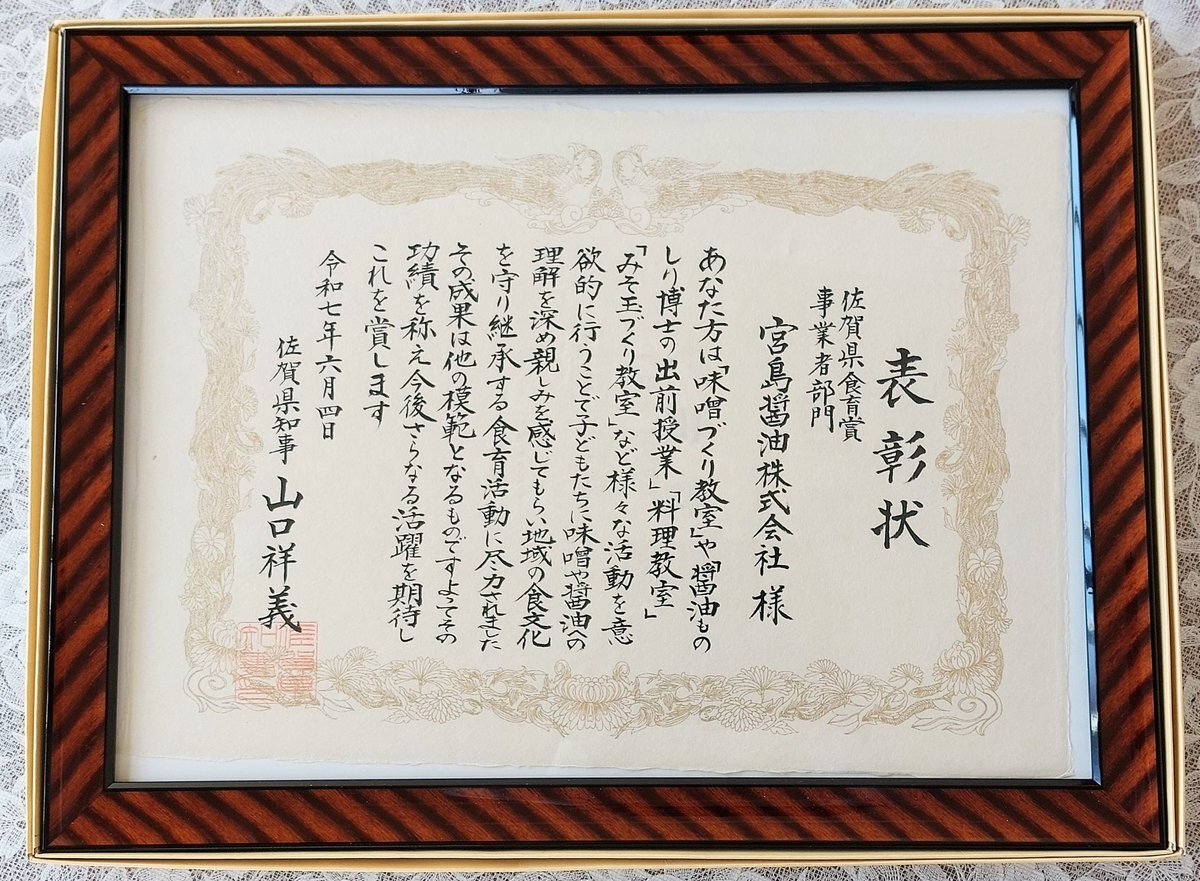 表彰状
佐賀県食育賞
事業者部門
宮島醤油株式会社 様
あなた方は「味噌づくり教室」や「醤油もの
しり博士の出前授業」「料理教室」
「みそ玉づくり教室」など様々な活動を意
欲的に行うことで子どもたちに味噌や醤油への
理解を深め親しみを感じてもらい地域の食文化
を守り継承する食育活動に尽力されました
その成果は他の模範となるものですよってその
功績を称え今後さらなる活躍を期待し
これを賞します
令和七年六月四日
佐賀県知事 山口祥義